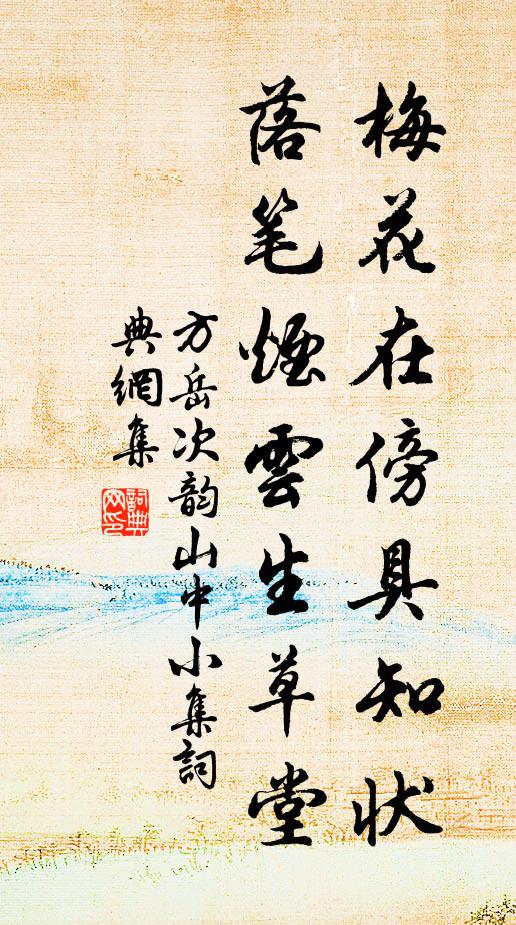 梅花在傍具知状
落笔煙雲生草堂
方岳次韵山中小集詞
典網集
詞典
网印